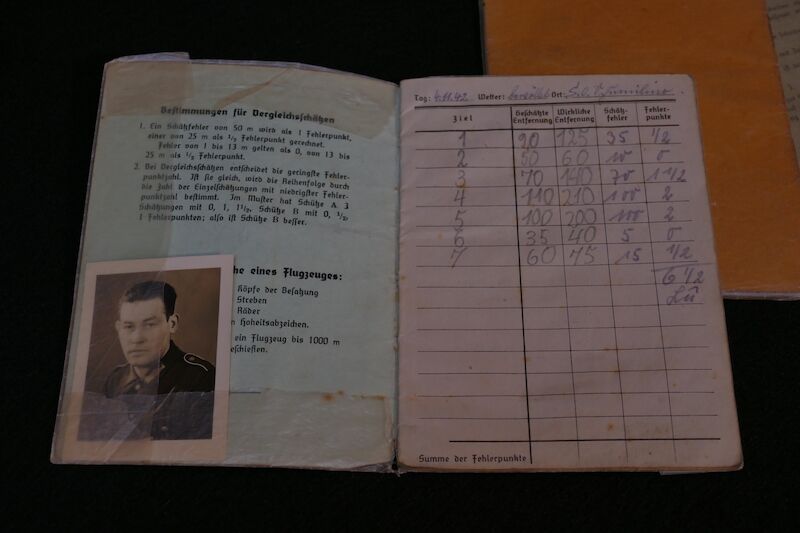 Bestimmungen für Vergleichsschätzen
1. Ein Schätzfehler von 50 m wird als 1 Fehlerpunkt,
einer von 25 m als ½ Fehlerpunkt gerechnet.
Fehler von 1 bis 13 m gelten als 0, von 13 bis
25 m als ½ Fehlerpunkt.
2. Bei Vergleichsschätzen entscheidet die geringste Fehler-
punktzahl. Ist sie gleich, wird die Reihenfolge durch
die Zahl der Einzelschätzungen mit niedrigster Fehler-
punktzahl bestimmt. Im Muster hat Schütze A 3
Schätzungen mit 0, 1, 1½, Schütze B mit 0, ½,
1 Fehlerpunkten; also ist Schütze B besser.
he eines Flugzeuges:
Köpfe der Besatzung
Streben
Räder
n Hoheitsabzeichen.
ein Flugzeug bis 1000 m
eschießen.
Tag: 4.11.42 Wetter: bewölkt Ort:
Ziel Geschätzte Entfernung Wirkliche Entfernung Schätz-fehler Fehler-punkte
1 90 125 35 1/2
2 50 60 10 0
3 70 140 70 1 1/2
4 110 210 100 2
5 100 200 100 2
6 35 40 5 0
7 60 75 15 1/2
6 1/2
Summe der Fehlerpunkte